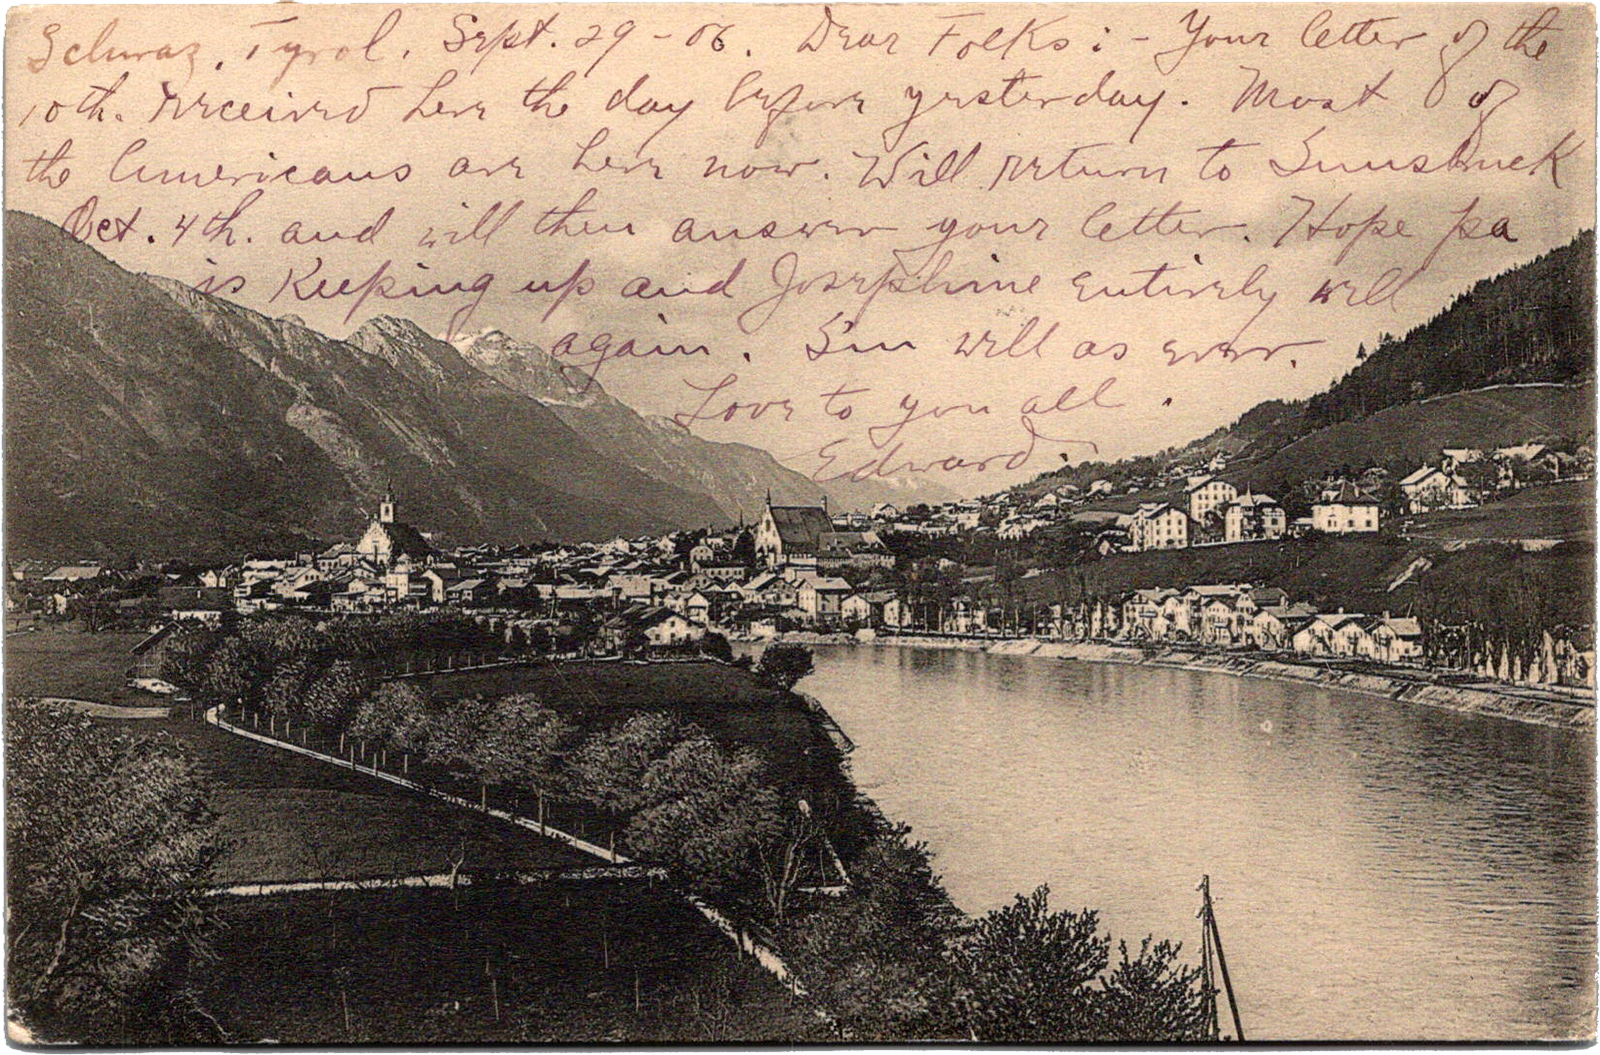 Schwaz, Tyrol, Sept. 29-06. Dear Folks:- Your letter of the
10th. received here the day before yesterday. Most of
the Americans are here now. Will return to Innsbruck
Oct. 4th. and will then answer your letter. Hope pa
is keeping up and Josephine entirely well
again. I'm well as ever.
Love to you all.
Edward.